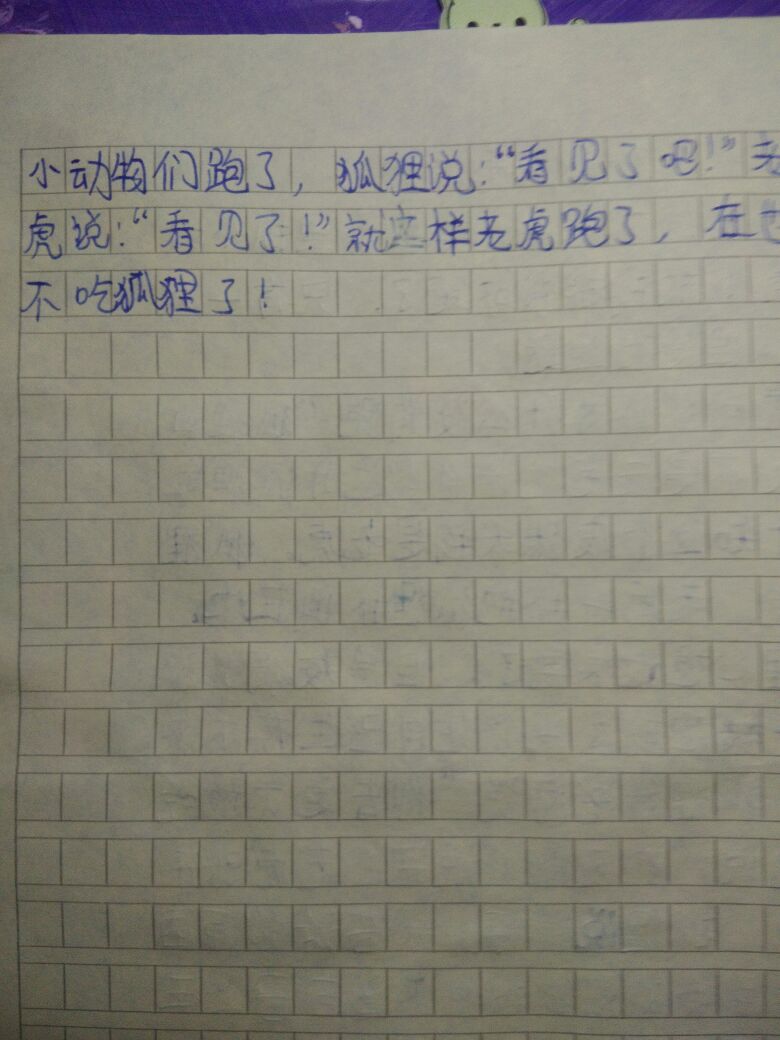 小动物们跑了，狐狸说：“看见了吧！”老
虎说：“看见了！”就这样老虎跑了，在也
不吃狐狸了！